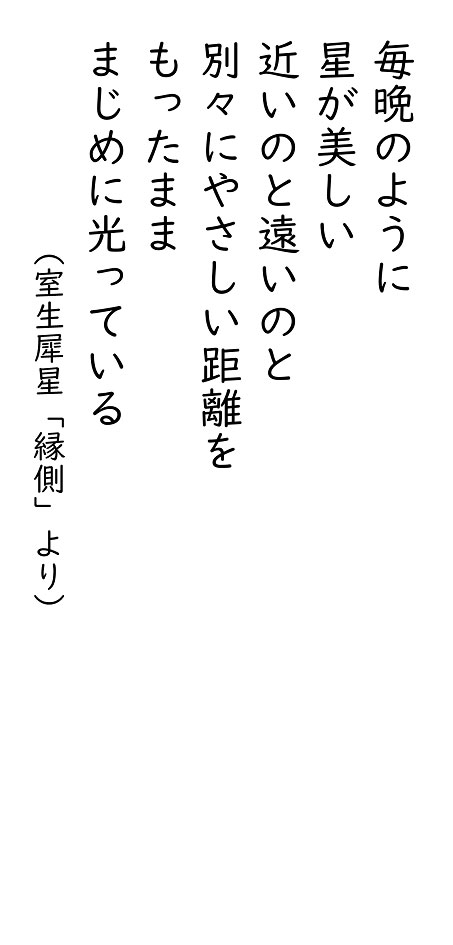 毎晩のように
星が美しい
近いのと遠いのと
別々にやさしい距離を
もったまま
まじめに光っている
（室生犀星「縁側」より）